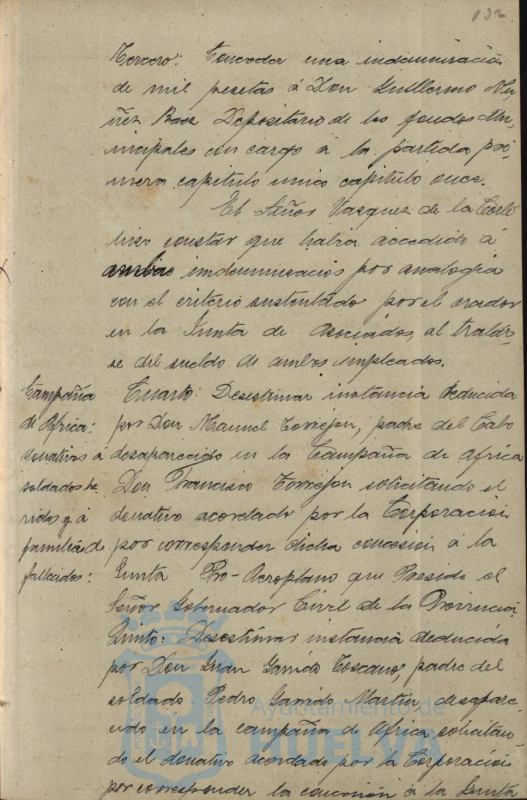 132
Tercero: Conceder una indemnisación
de mil pesetas á Don Guillermo Nu-
ñez Baez Depositario de los fondos Mu-
nicipales con cargo á la partida pri-
mera capitulo unico capitulo once.
El Señor Vazquez de la Corte
hizo constar que habia accedido á
ambas indemnisacios por analogia
con el criterio sustentado por el orador
en la Junta de Asociados, al tratar-
se del sueldo de ambos empleados.
Campaña
de Africa:
donativos á
soldados he
ridos y á
familia de
fallecidos:
Cuarto: Desestimar instancia deducida
por Don Manuel Torrejon, padre del Cabo
desaparecido en la Campaña de Africa
Don Francisco Torrejon solicitando el
donativo acordado por la Corporacion
por corresponder dicha concesion á la
Junta Pro-Aeroplano que Preside el
Señor Gobernador Civil de la Provincia
Quinto: Desestimar instancia deducida
por Don Juan Garrido Toscano, padre del
soldado Pedro Garrido Martin, desapare-
cido en la campaña de Africa, solicitan-
do el donativo acordado por la Corporacion
por corresponder la concesion á la Junta
Ayuntamiento de
HUELVA